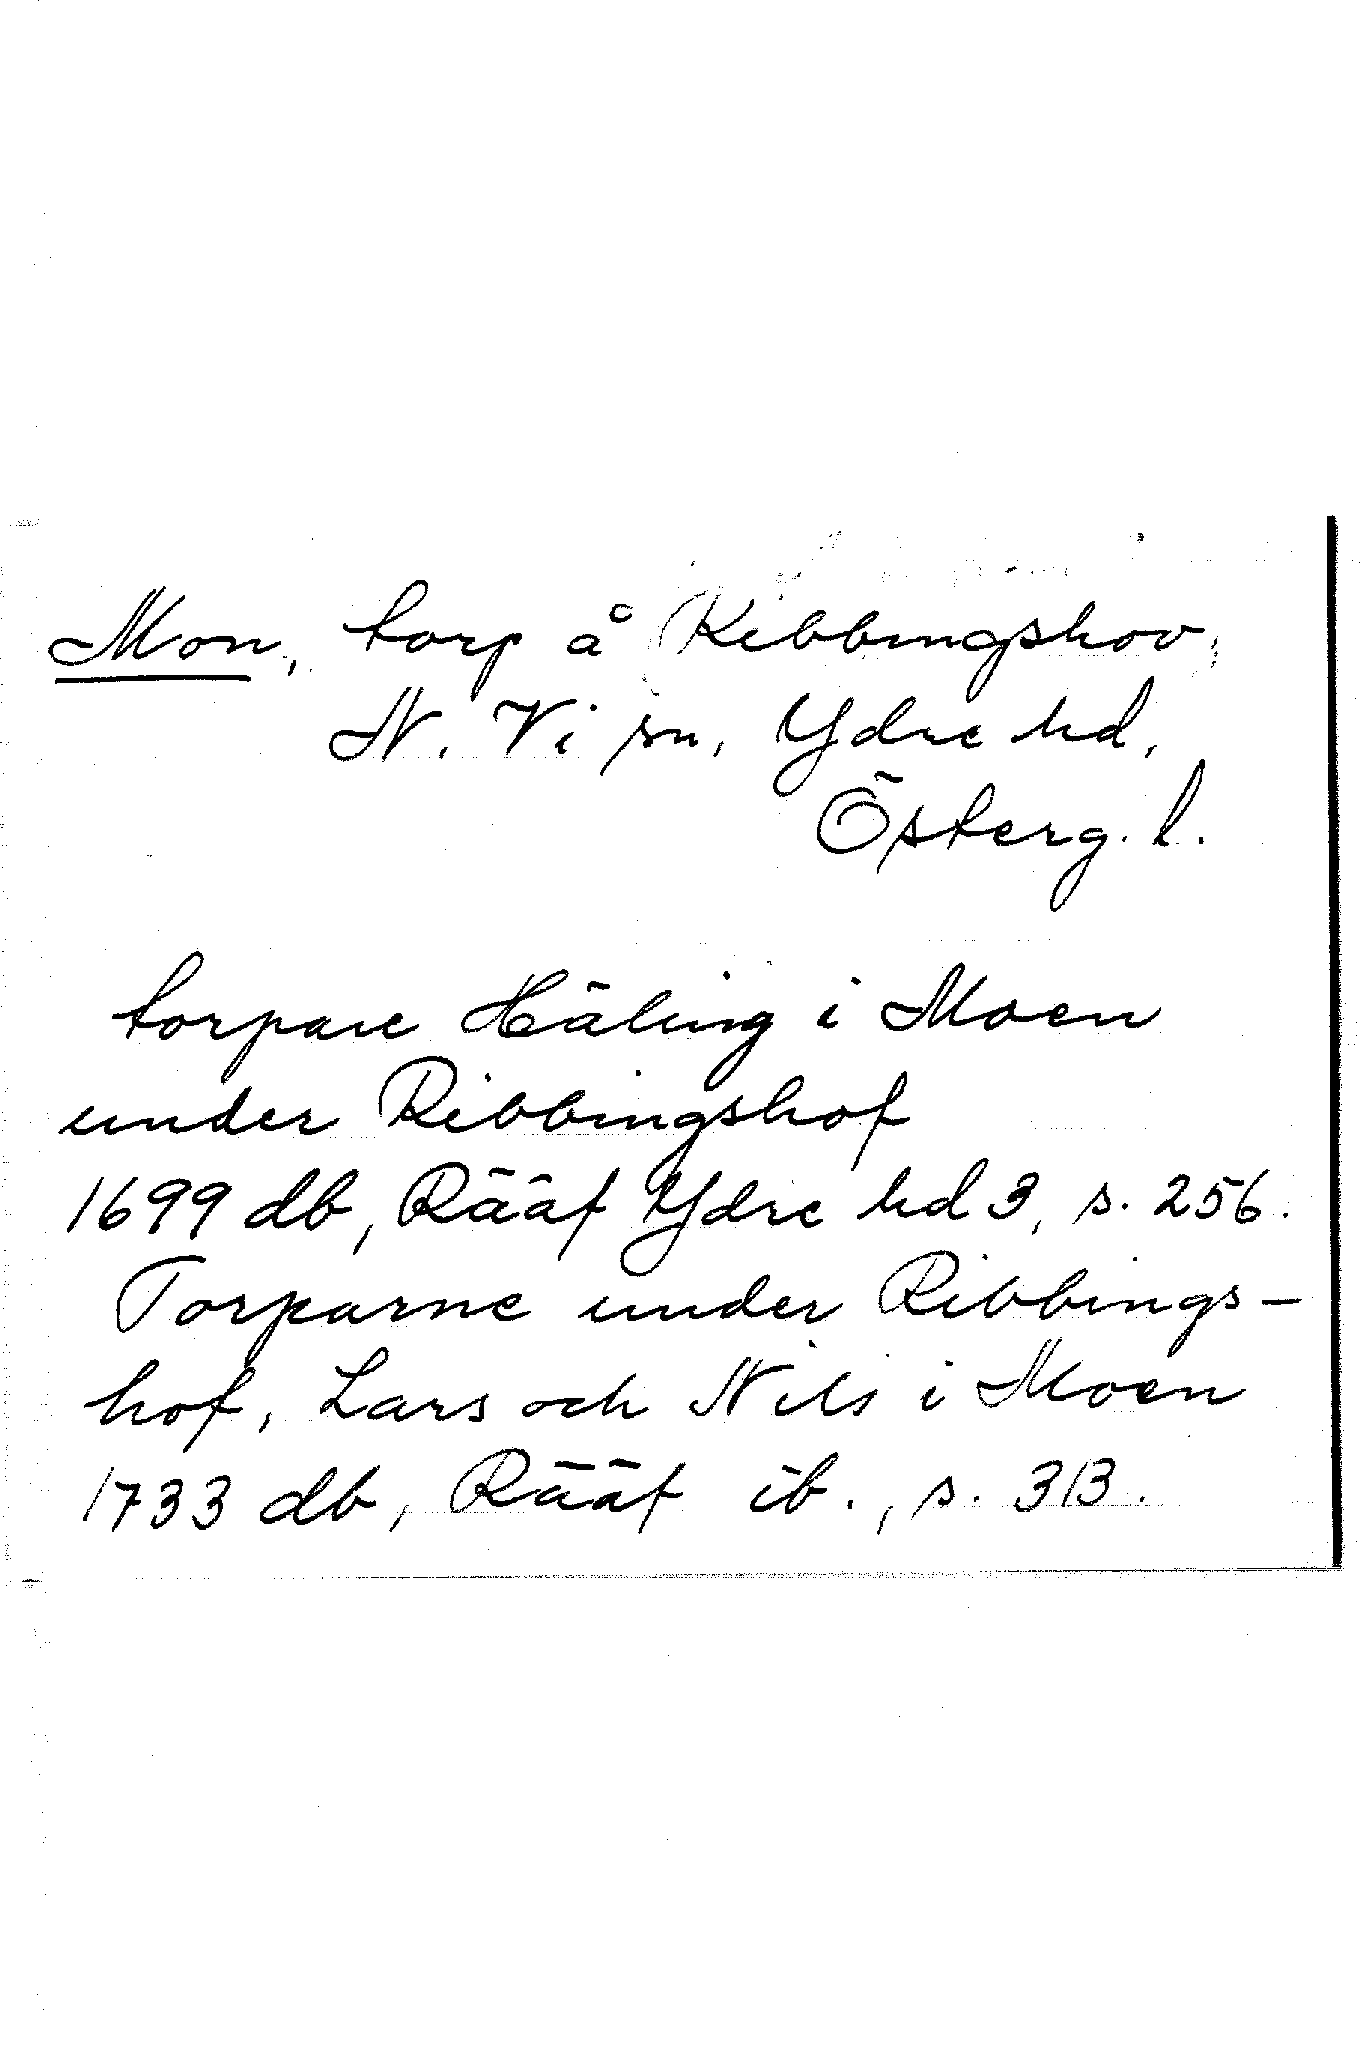 Mon, torp å Ribbingshov,
N. Vi sn, Ydre hd,
Österg. l.
torpare Häling i Moen
under Ribbingshof
1699 db, Rääf Ydre hd 3, s. 256.
Torparne under Ribbings-
hof, Lars och Nils i Moen
1733 db, Rääf ib., s. 313.